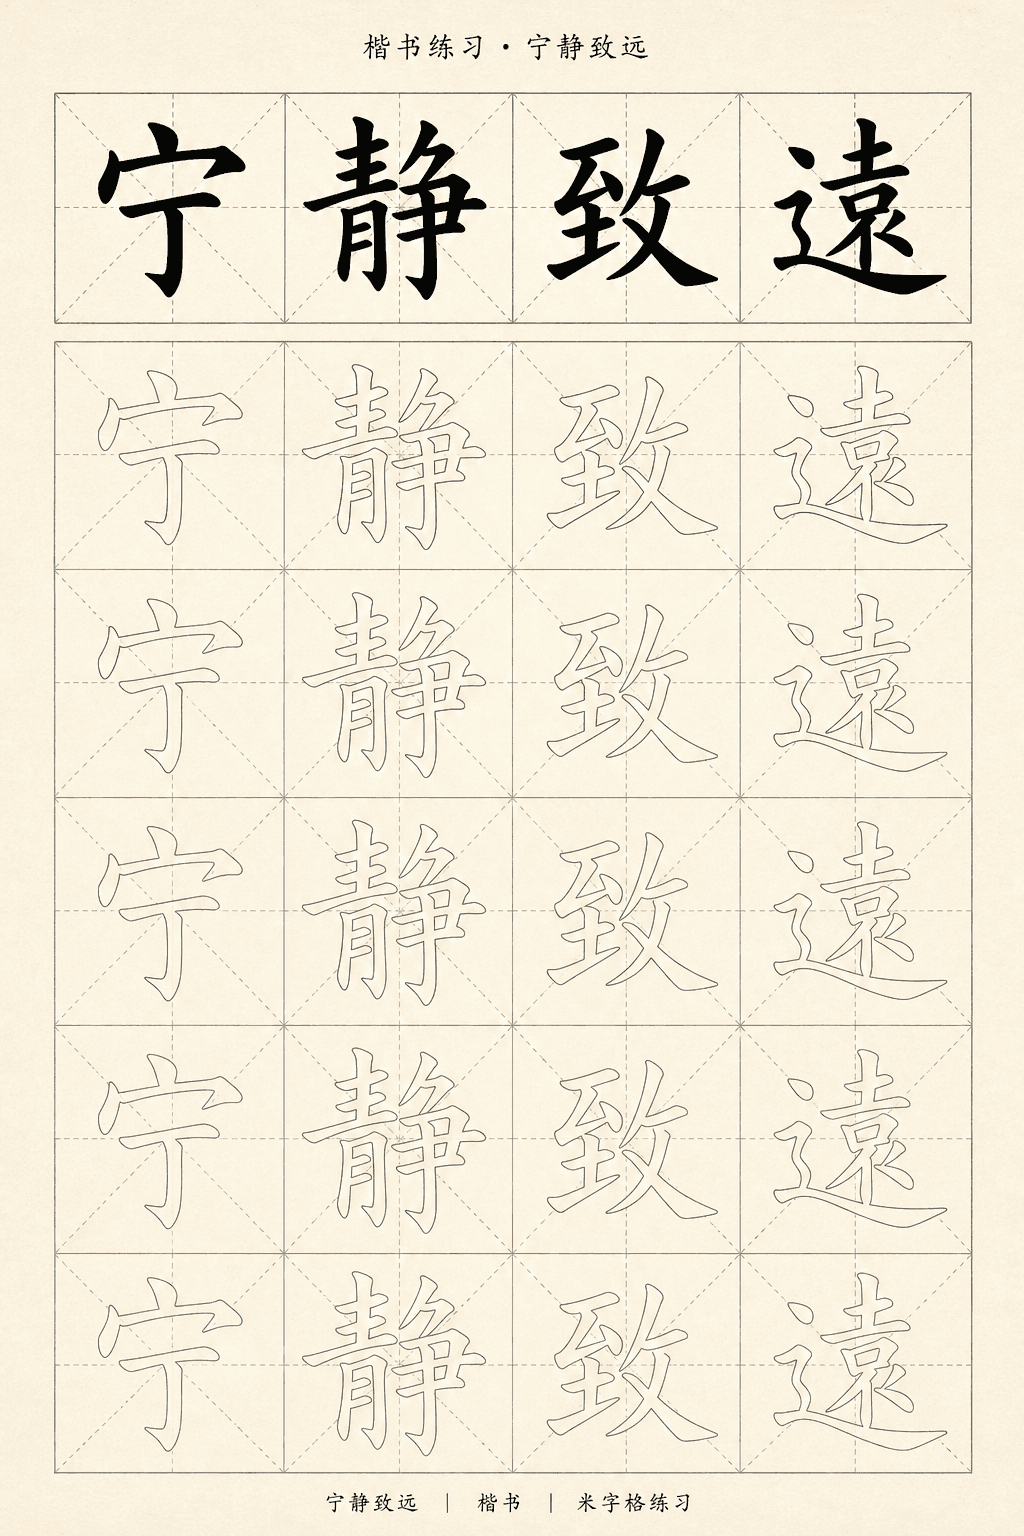 楷书练习·宁静致远
宁静致遠
宁静致遠
宁静致遠
宁静致遠
宁静致遠
宁静致遠
宁静致远 | 楷书 | 米字格练习